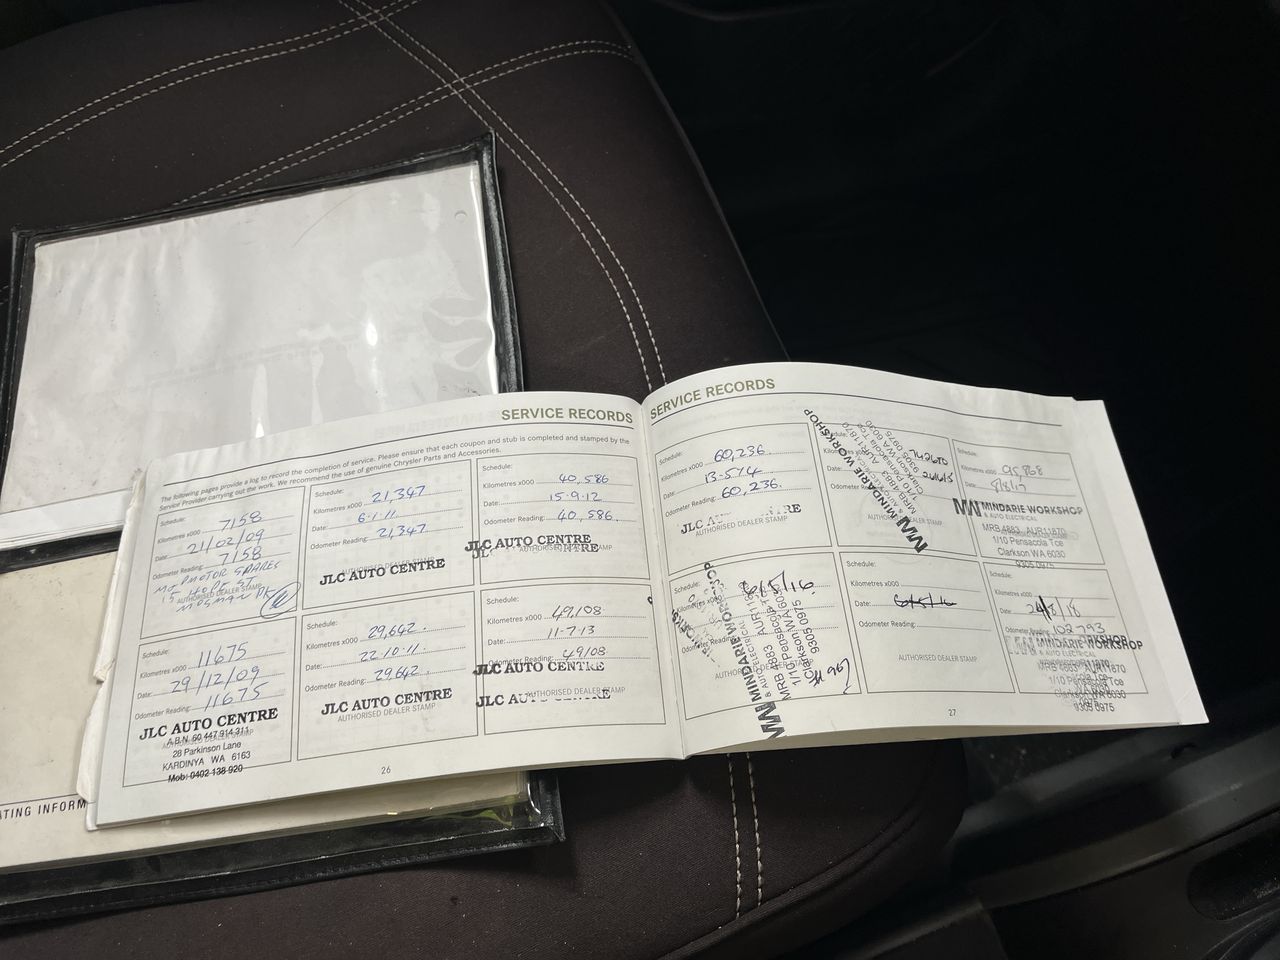 SERVICE RECORDS
The following pages provide a log to record the completion of service. Please ensure that each coupon and stub is completed and stamped by the
Service Provider carrying out the work. We recommend the use of genuine Chrysler Parts and Accessories.
Schedule:
Kilometres x000 7158
Date: 21/02/09
Odometer Reading: 7158
MOTOR SPARES
15 HOPE ST
MOSMAN PK
AUTHORISED DEALER STAMP
Schedule:
Kilometres x000 21,347
Date: 6.1.11
Odometer Reading: 21,347
AUTHORISED DEALER STAMP
JLC AUTO CENTRE
Schedule:
Kilometres x000 40,586
Date: 15.9.12
Odometer Reading: 40,586.
JLC AUTO CENTRE
AUTHORISED DEALER STAMP
Schedule:
Kilometres x000 11675
Date: 29/12/09
Odometer Reading: 11675
JLC AUTO CENTRE
A.B.N. 60 447 914 311
28 Parkinson Lane
KARDINYA WA 6163
Mob: 0402 138 920
Schedule:
Kilometres x000 29,642.
Date: 22.10.11.
Odometer Reading: 29642
JLC AUTO CENTRE
AUTHORISED DEALER STAMP
Schedule:
Kilometres x000 49,108
Date: 11-7-13
Odometer Reading: 49,108
JLC AUTO CENTRE
AUTHORISED DEALER STAMP
26
SERVICE RECORDS
Schedule:
Kilometres x000 60,236.
Date: 13.5.14
Odometer Reading: 60,236.
JLC CENTRE
AUTHORISED DEALER STAMP
MINDARIE WORKSHOP
& AUTO ELECTRICAL
MRB 4883 AUR11870
1/10 Pensacola Tce
Clarkson WA 6030
9305 0975
AUTHORISED DEALER STAMP
Schedule:
Kilometres x000 95,868
Date: 8/8/17
MINDARIE WORKSHOP
& AUTO ELECTRICAL
MRB 4883 AUR11870
1/10 Pensacola Tce
Clarkson WA 6030
9305 0975
Schedule:
Kilometres x000
Date: 6/5/16
MINDARIE WORKSHOP
& AUTO ELECTRICAL
MRB 4883
1/10 Pensacola Tce
Clarkson WA 6030
9305 0975
Schedule:
Kilometres x000
Date: 6/5/16
Odometer Reading:
AUTHORISED DEALER STAMP
Schedule:
Kilometres x000
Date:
Odometer Reading: 102793
MINDARIE WORKSHOP
Clarkson WA 6030
9305 0975
27